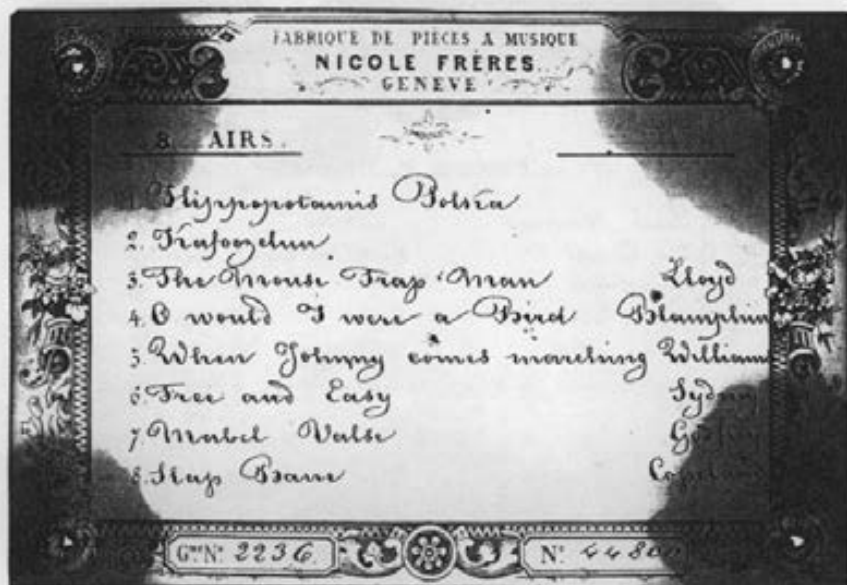 FABRIQUE DE PIÈCES A MUSIQUE
NICOLE FRÈRES.
GENÈVE
8 AIRS.
1. Hippopotamis Polka
2. Kafoozelun
3. The Mouse Trap Man Lloyd
4. O would I were a Bird Blamphin
5. When Johnny comes marching William
6. Free and Easy Sydney
7 Mabel Valse Godfrey
8. Slap Bane Copeland
Gme No. 2236. No. 44800